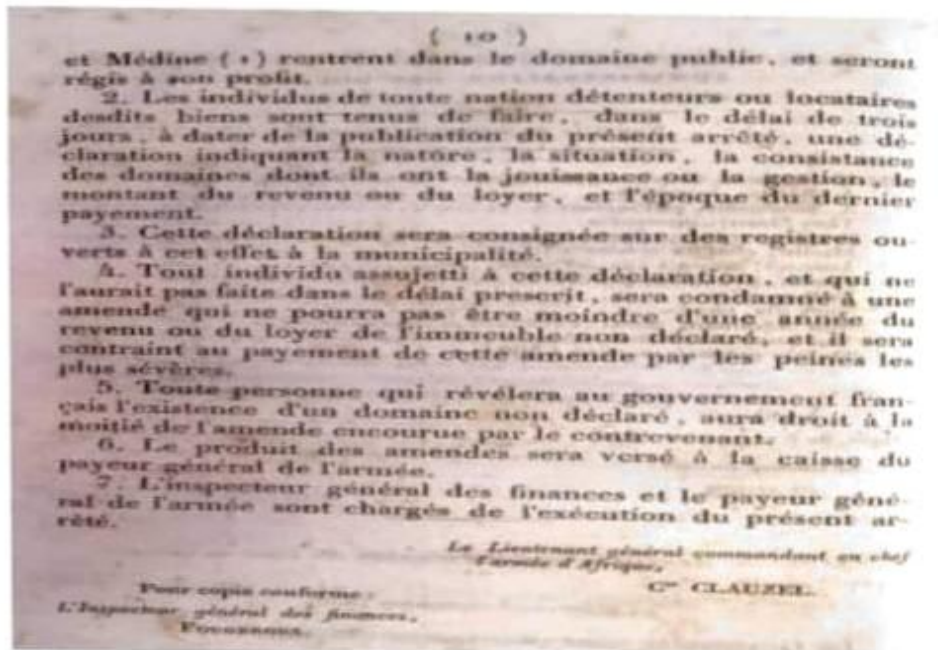 ( 10 )
et Médine (1) rentrent dans le domaine public, et seront
régis à son profit.
2. Les individus de toute nation détenteurs ou locataires
desdits biens sont tenus de faire, dans le délai de trois
jours, à dater de la publication du présent arrêté, une dé-
claration indiquant la nature, la situation, la consistance
des domaines dont ils ont la jouissance ou la gestion, le
montant du revenu ou du loyer, et l'époque du dernier
payement.
3. Cette déclaration sera consignée sur des registres ou-
verts à cet effet à la municipalité.
4. Tout individu assujetti à cette déclaration, et qui ne
l'aurait pas faite dans le délai prescrit, sera condamné à une
amende qui ne pourra pas être moindre d'une année du
revenu ou du loyer de l'immeuble non déclaré, et il sera
contraint au payement de cette amende par les peines les
plus sévères.
5. Toute personne qui révélera au gouvernement fran-
çais l'existence d'un domaine non déclaré, aura droit à la
moitié de l'amende encourue par le contrevenant.
6. Le produit des amendes sera versé à la caisse du
payeur général de l'armée.
7. L'inspecteur général des finances et le payeur géné-
ral de l'armée sont chargés de l'exécution du présent ar-
rêté.
Le Lieutenant général commandant en chef
l'armée d'Afrique,
Cte CLAUZEL.
Pour copie conforme :
L'Inspecteur général des finances,